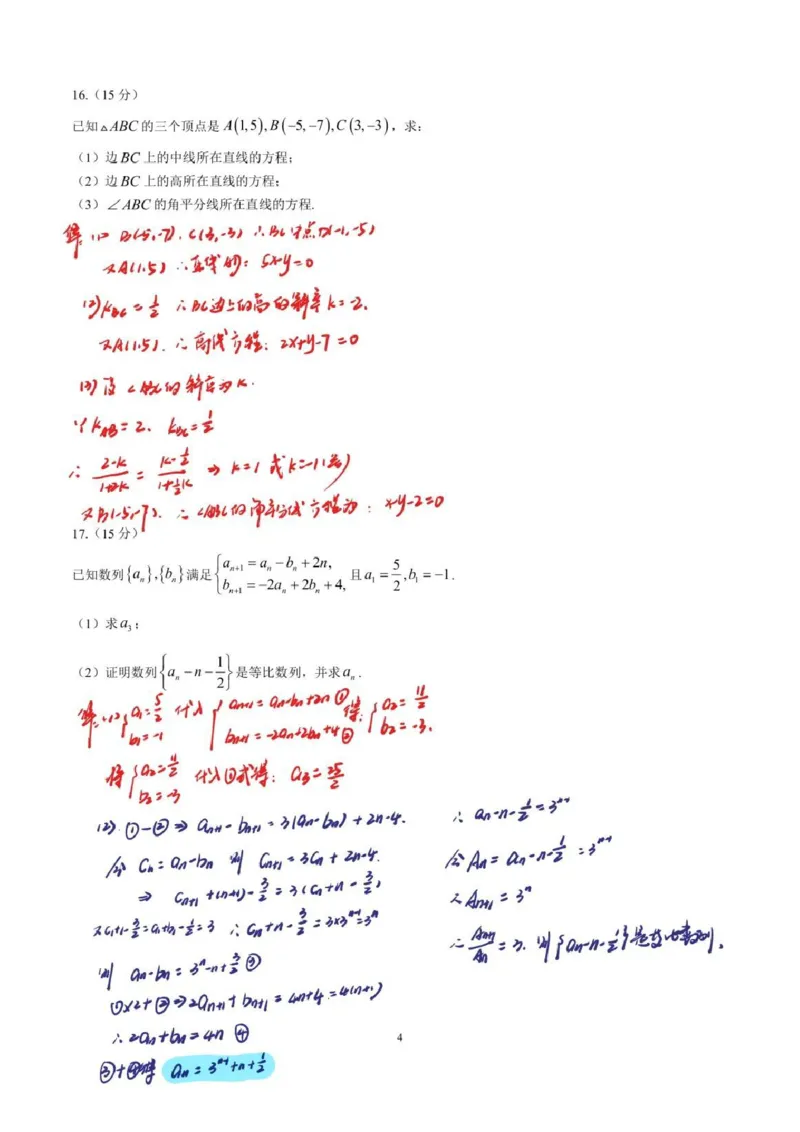 16.（15 分）
已知△ABC 的三个顶点是 A(1,5),B(−5,−7),C(3,−3)，求：
（1）边 BC 上的中线所在直线的方程；
（2）边 BC 上的高所在直线的方程；
（3）∠ABC 的角平分线所在直线的方程.
解：(1) B(-5,-7). C(3,-3) ∴BC中点D(-1,-5)
又A(1,5) ∴直线的：5x-y=0
(2) k_BC = 1/2 ∴BC边上的高的斜率k=-2.
又A(1,5). ∴高线方程：2x+y-7=0
(3) 设∠ABC的斜率为k.
k_AB=2、k_BC=1/2
∴ (2-k)/(1+2k) = (k-1/2)/(1+1/2k) ⇒ k=1 或k=-1(舍)
又B(-5,-7). ∴∠ABC的角平分线方程为：x-y-2=0
17.（15 分）
已知数列{a_n},{b_n}满足 { a_{n+1} = a_n − b_n + 2n, b_{n+1} = −2a_n + 2b_n + 4, 且a_1 = 5/2, b_1 = −1.
（1）求a_3；
（2）证明数列{a_n − n − 1/2}是等比数列，并求a_n.
解：(1) { a_1=5/2 b_1=-1 代入 { a_{n+1}=a_n-b_n+2n ① b_{n+1}=-2a_n+2b_n+4 ② 得：{ a_2=11/2 b_2=-3.
将 { a_2=11/2 b_2=-3 代入①式得：a_3=25/2
(2). ①-② ⇒ a_{n+1}-b_{n+1}=3(a_n-b_n)+2n-4.
令 C_n=a_n-b_n 则 C_{n+1}=3C_n+2n-4.
⇒ C_{n+1}+(n+1)-3/2=3(C_n+n-3/2)
又C_1+1-3/2=a_1-b_1-1/2=3 ∴C_n+n-3/2=3×3^{n-1}=3^n
则 a_n-b_n=3^n-n+3/2 ③
①×2+② ⇒ 2a_{n+1}+b_{n+1}=4n+4=4(n+1)
∴2a_n+b_n=4n ④
③+④得 a_n=3^{n-1}+n+1/2
∴ a_n-n-1/2=3^{n-1}
令A_n=a_n-n-1/2=3^{n-1}
又A_{n+1}=3^n
∴ A_{n+1}/A_n=3. 则{a_n-n-1/2}是等比数列.
4